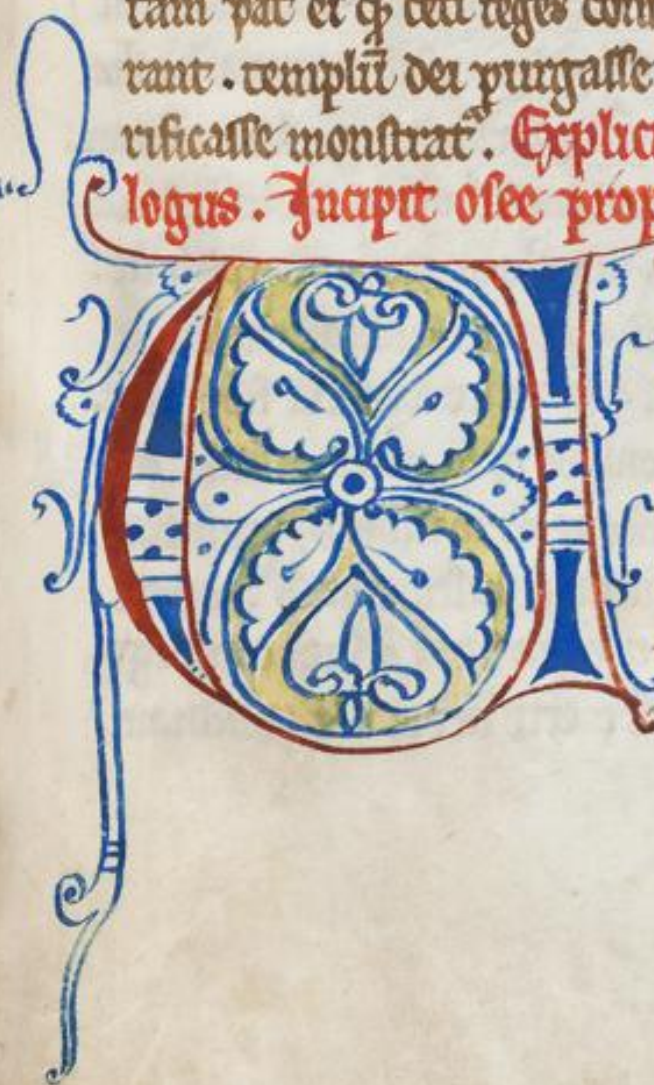 ram pat et qͥ ceti reges com
rant . templū dei purgasse
rificasse monstratᷣ . Explici
logus . Incipit osee prop
U